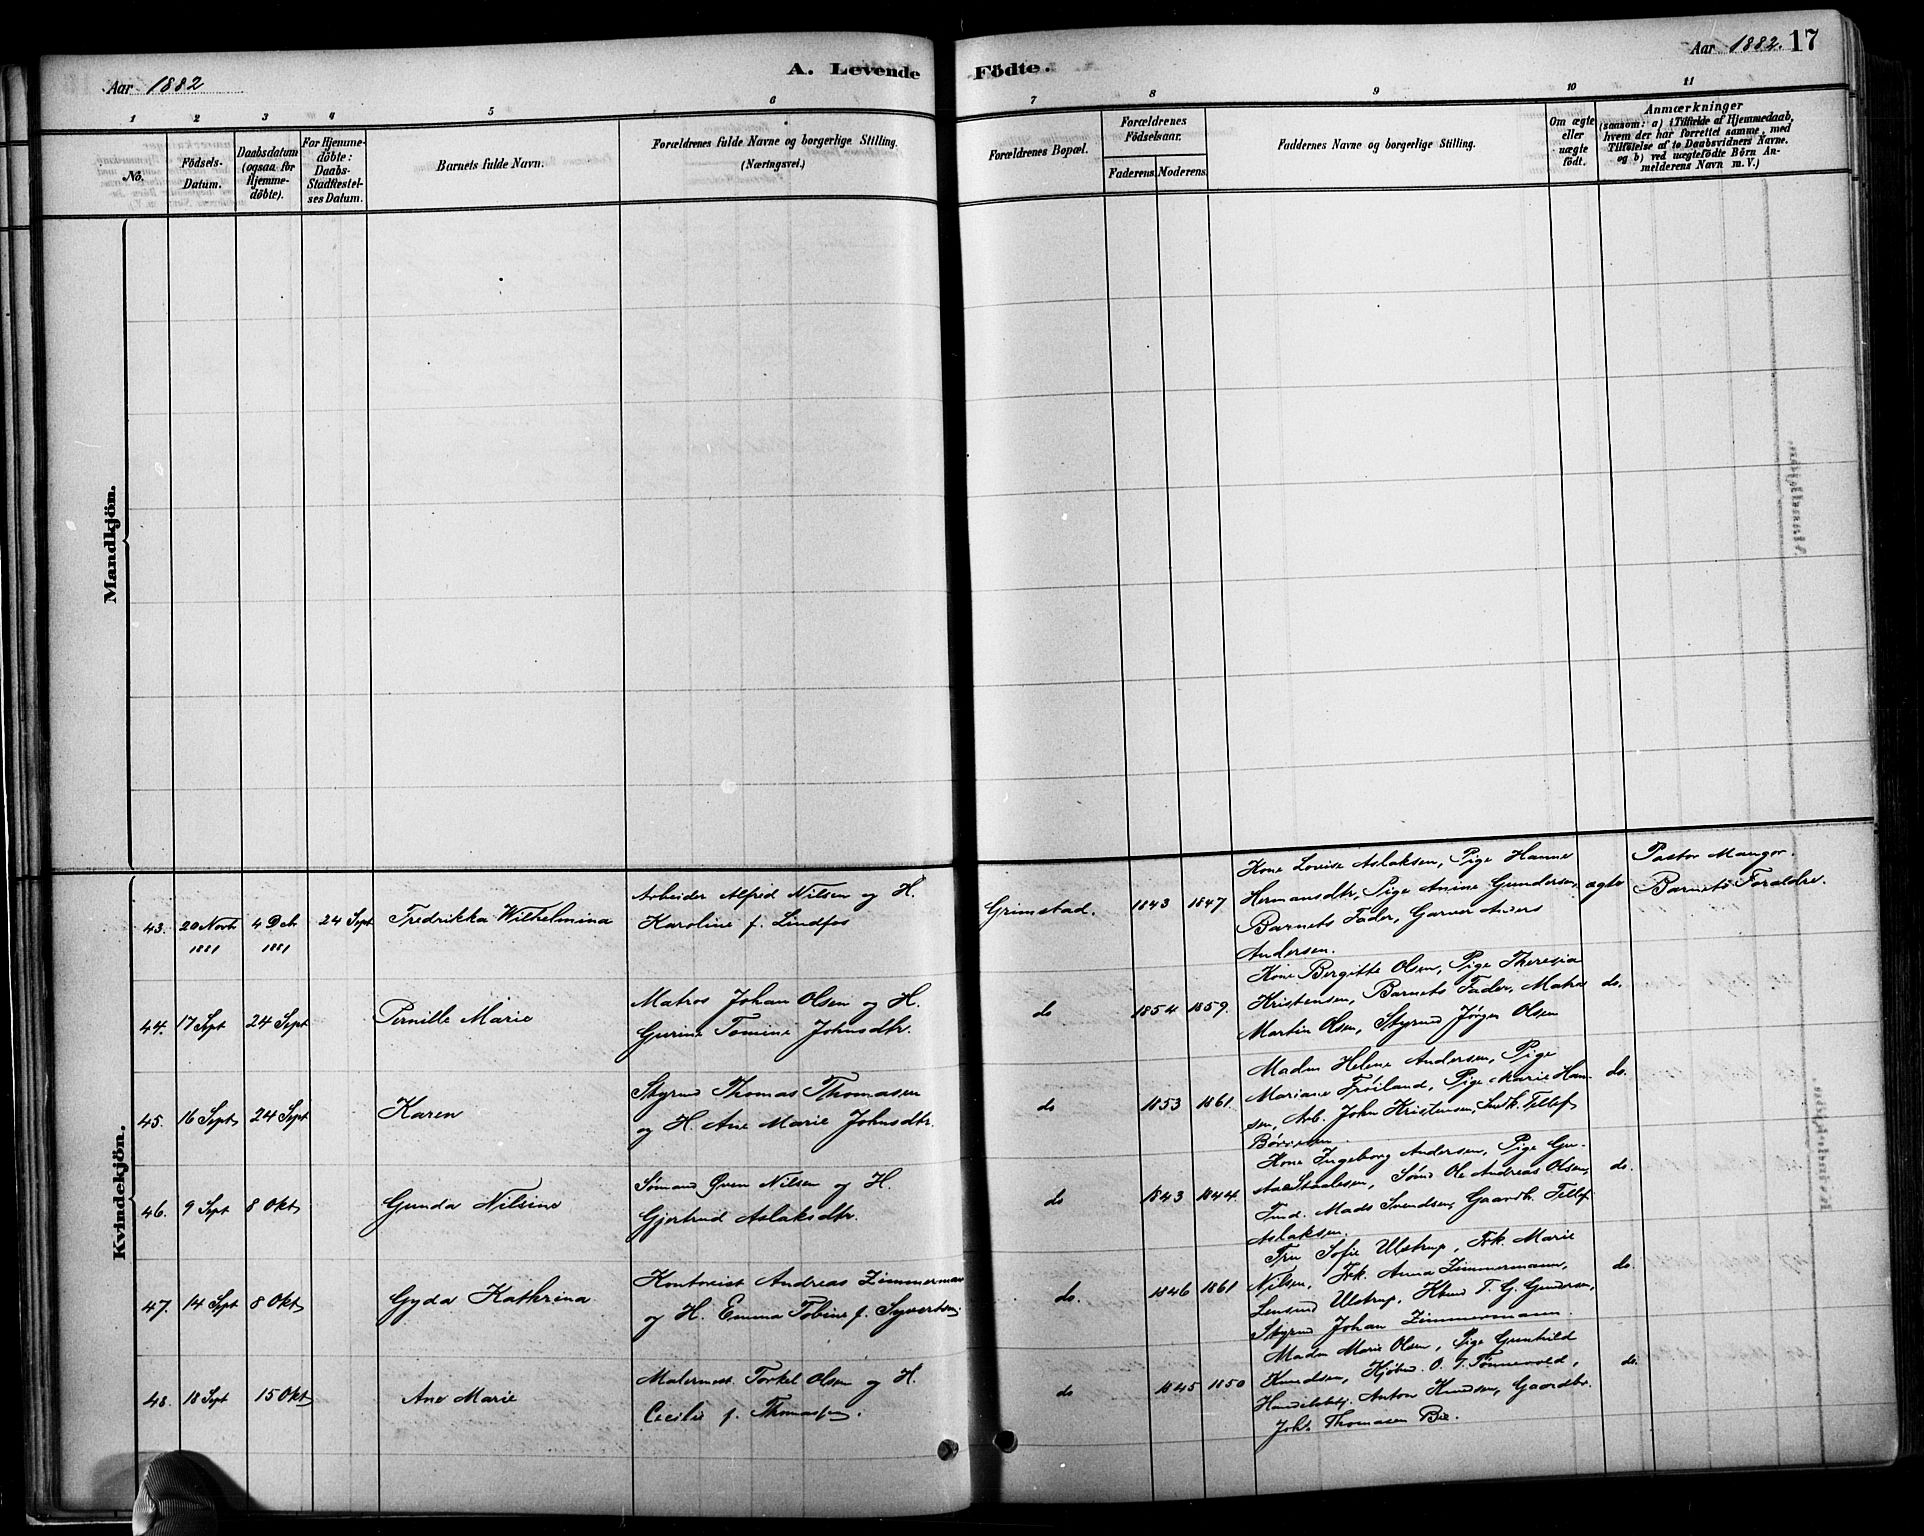 Aar 1882
A. Levende
Födte.
Aar 1882. 17
1 2 3 4 5 6 7 8 9 10 11
No.
Födsels-
Datum.
Daabsdatum
(ogsaa for
Hjemme-
døbte).
For Hjemme-
døbte:
Daabs-
Stadfæstel-
ses Datum.
Barnets fulde Navn.
Forældrenes fulde Navne og borgerlige Stilling.
(Næringsvei.)
Forældrenes Bopæl.
Forældrenes
Födselsaar.
Faderens. Moderens.
Faddernes Navne og borgerlige Stilling.
Om ægte
eller
uægte
født.
Anmærkninger
(saasom: a) i Tilfælde af Hjemmedaab,
hvem der har forrettet samme, med
Tilföielse af to Daabsvidners Navne.
og b) ved uægtefödte Börn An-
melderens Navn m. V.)
Mandkjön.
Kvindekjön.
43. 20 Novb 4 Deb 24 Sept Fredrikka Wilhelmina
1881 1881
Arbeider Alfred Nilsen og H.
Karoline f. Lindfos
Grimstad. 1843 1847
Kone Lovise Aslaksen, Pige Hanne
Hermansdtr, Pige Anine Gundersen,
Barnets Fader, Garver Anders
Andersen.
ægte
Pastor Mangor.
Barnets Forældre.
44. 17 Sept 24 Sept Pernille Marie
Matros Johan Olsen og H.
Gurine Tomine Johnsdtr.
do 1854 1859.
Kone Bergitte Olsen, Pige Theresia
Kristensen, Barnets Fader, Matro
Martin Olsen, Styrmd Jørgen Olsen
do.
45. 16 Sept 24 Sept Karen
Styrmd Thomas Thomasen
og H. Ane Marie Johnsdtr.
do 1853 1861.
Madm Helene Andersen, Pige
Mariane Frøiland, Pige Marie Han-
sen, Arb. John Kristensen, Snedk. Tellef
Børresen.
do.
46. 9 Sept 8 Okt Gunda Nilsine
Sømand Even Nilsen og H.
Gjertrud Aslaksdtr.
do 1843 1844.
Kone Ingeborg Andersen, Pige Gu-
sta Staalesen, Sømd Ole Andreas Olsen,
Tmd. Mads Svendsen, Gaardb. Tellef
Aslaksen.
do.
47. 14 Sept 8 Okt Gyda Kathrina
Kontorist Andreas Zimmerman
og H. Emma Tobine f. Syvertsen
do. 1846 1861
Fru Sofie Ulstrup, Frk. Marie
Nilsen, Frk. Anna Zimmermann,
Lensmd Ulstrup, Kbmd T. G. Gundersen,
Styrmd Johan Zimmermann.
do.
48. 18 Sept 15 Okt Ane Marie
Malermest. Torkel Olsen og H.
Cecilie f. Thomassen.
do 1845 1850
Madm Marie Olsen, Pige Gunhild
Knudsen, Kjøbmd. O. T. Tønnevold,
Handelsbtj. Anton Knudsen, Gaardbr.
Joh. Thomasen Bie.
do.